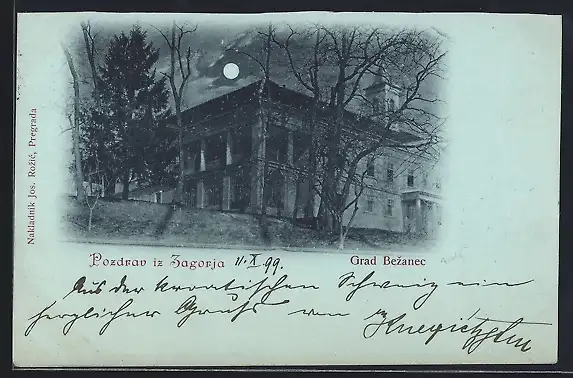 Nakladnik Jos. Rožić, Pregrada
Pozdrav iz Zagorja 11. X. 99.
Grad Bežanec
Aus der kroatischen Schweiz ein
herzlicher Gruss von